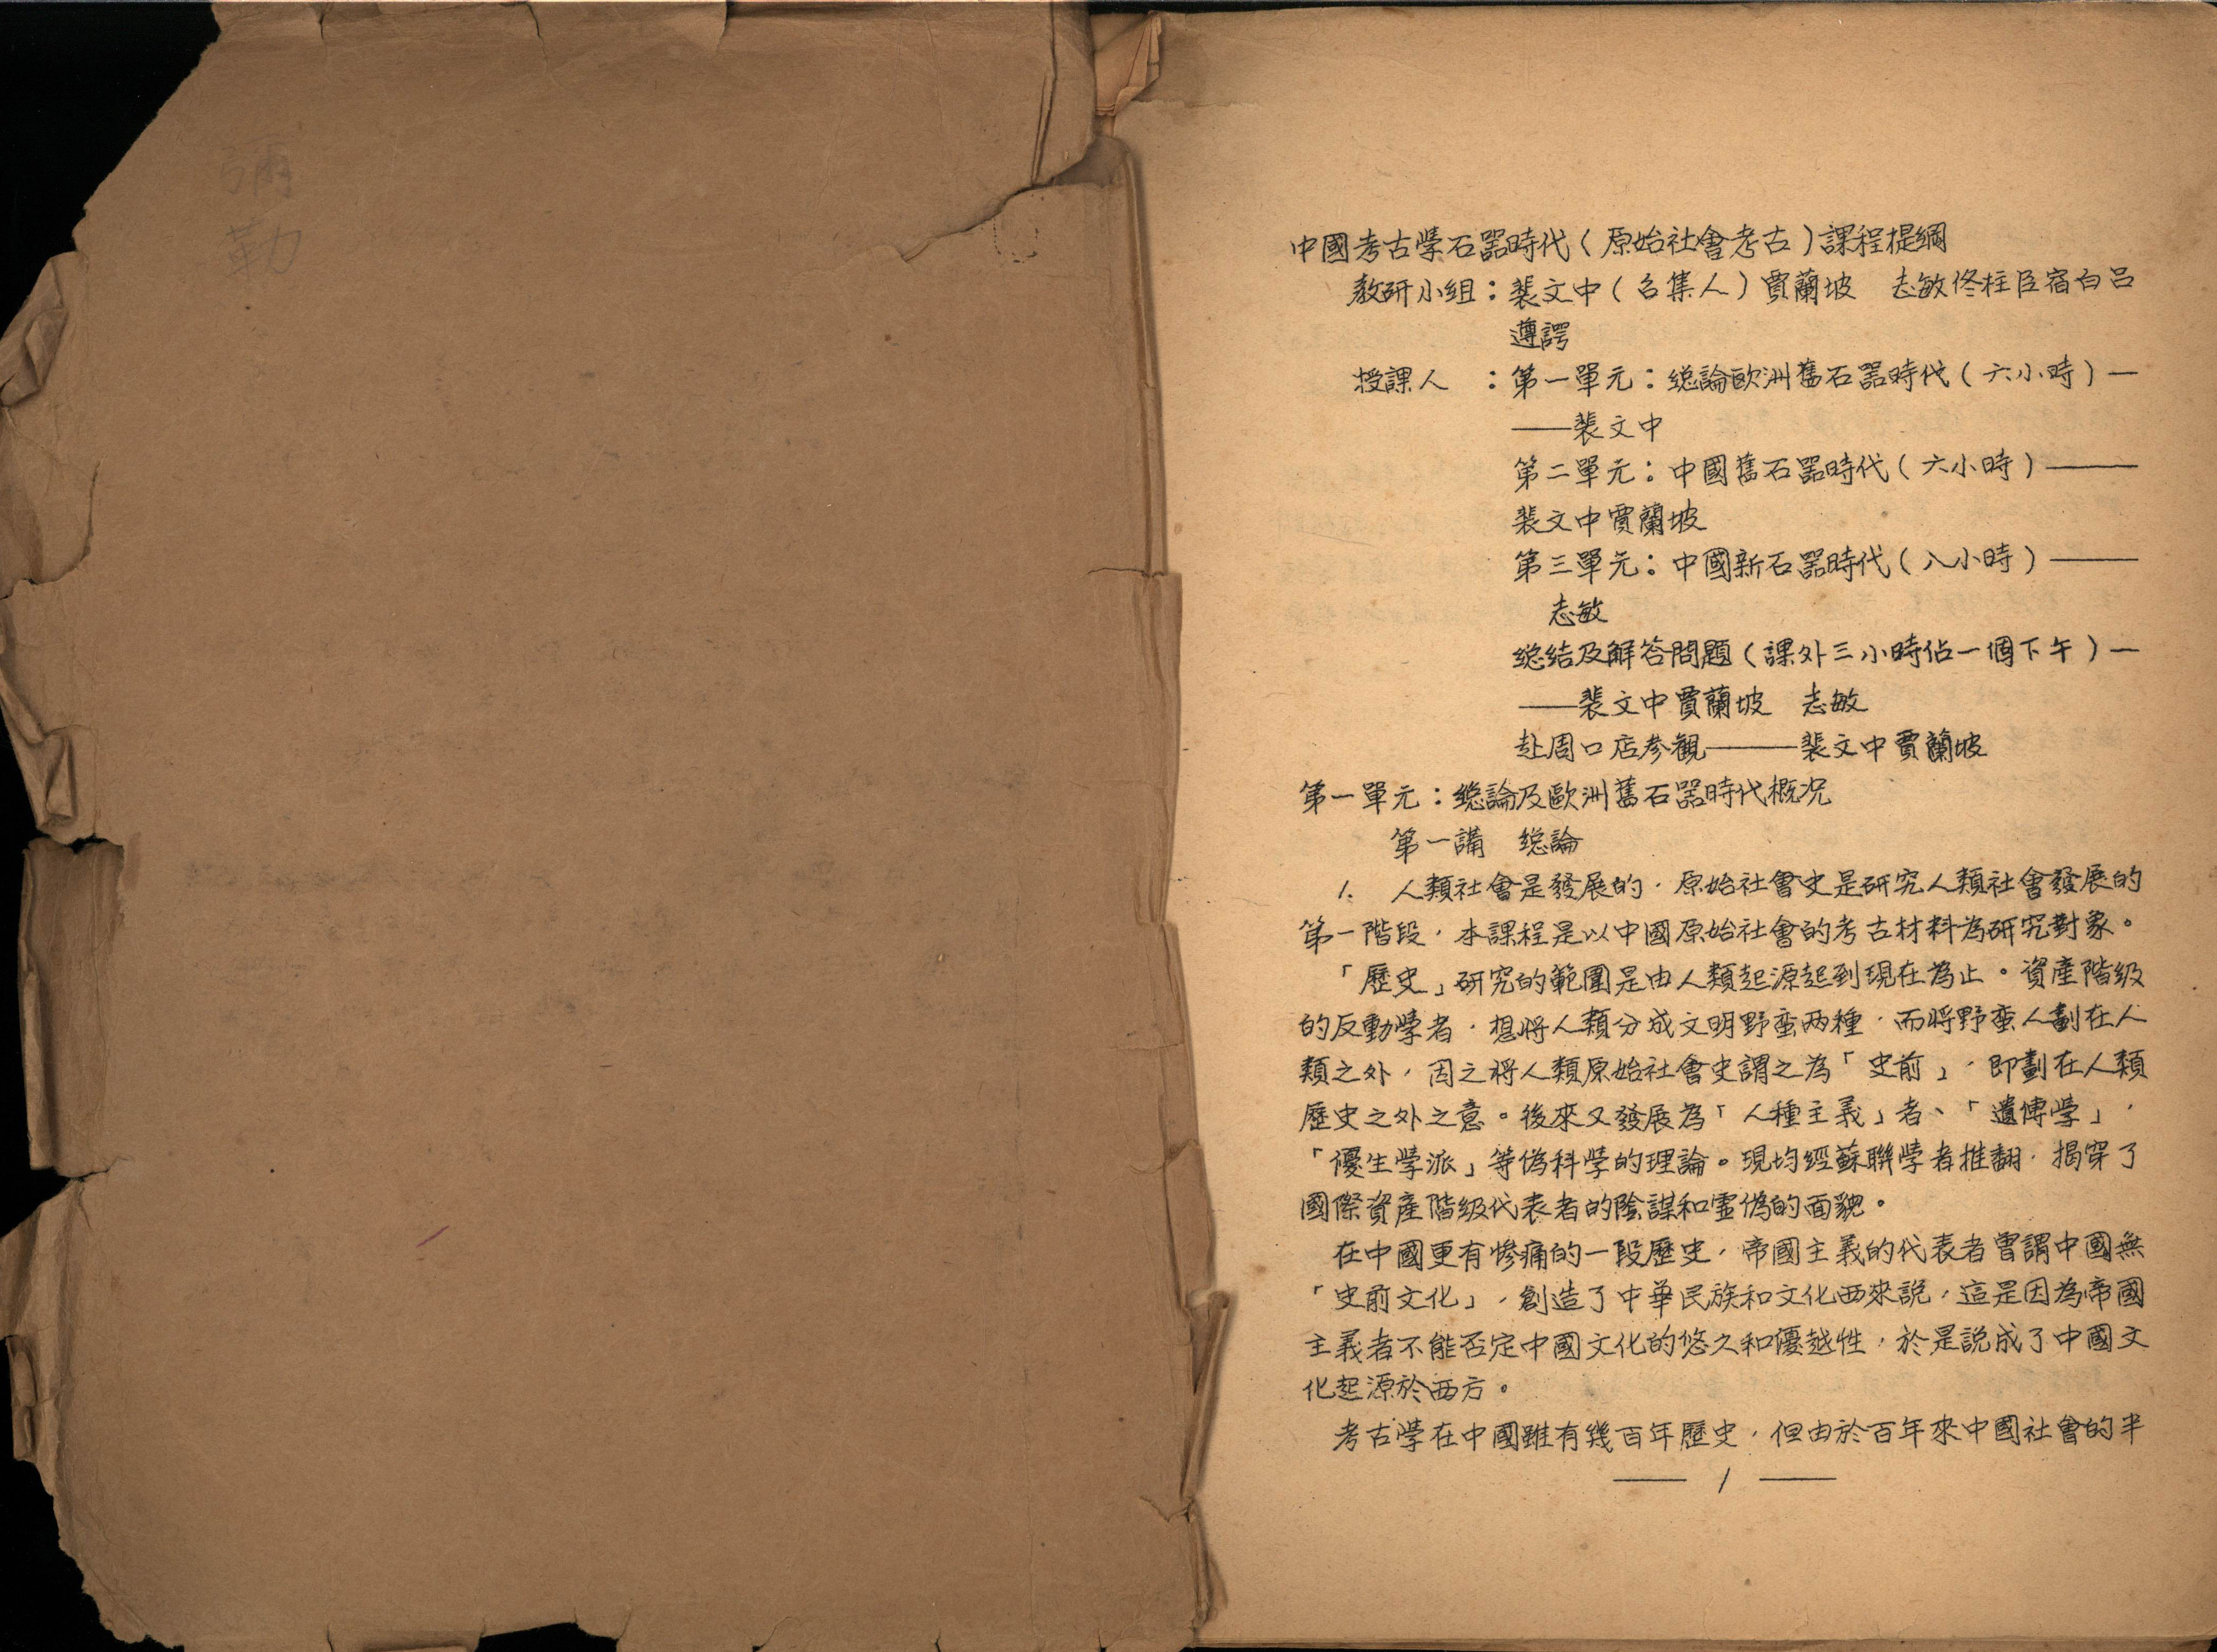 彌
勒
中國考古學石器時代（原始社會考古）課程提綱
教研小組：裴文中（召集人）賈蘭坡　志敏佟柱臣宿白呂
遵諤
授課人　：第一單元：總論歐洲舊石器時代（六小時）—
——裴文中
第二單元：中國舊石器時代（六小時）———
裴文中賈蘭坡
第三單元：中國新石器時代（八小時）———
志敏
總結及解答問題（課外三小時佔一個下午）—
——裴文中賈蘭坡　志敏
赴周口店參觀———裴文中賈蘭坡
第一單元：總論及歐洲舊石器時代概況
第一講　總論
1.　人類社會是發展的，原始社會史是研究人類社會發展的
第一階段，本課程是以中國原始社會的考古材料為研究對象。
「歷史」研究的範圍是由人類起源起到現在為止。資產階級
的反動學者，想將人類分成文明野蛮两種，而將野蛮人劃在人
類之外，因之將人類原始社會史謂之為「史前」，即劃在人類
歷史之外之意。後來又發展為「人種主義」者、「遺傳學」，
「優生學派」等偽科學的理論。現均經蘇聯學者推翻，揭穿了
國際資產階級代表者的陰謀和虛偽的面貌。
在中國更有慘痛的一段歷史，帝國主義的代表者曾謂中國無
「史前文化」，創造了中華民族和文化西來說，這是因為帝國
主義者不能否定中國文化的悠久和優越性，於是說成了中國文
化起源於西方。
考古學在中國雖有幾百年歷史，但由於百年來中國社會的半
—— 1 ——